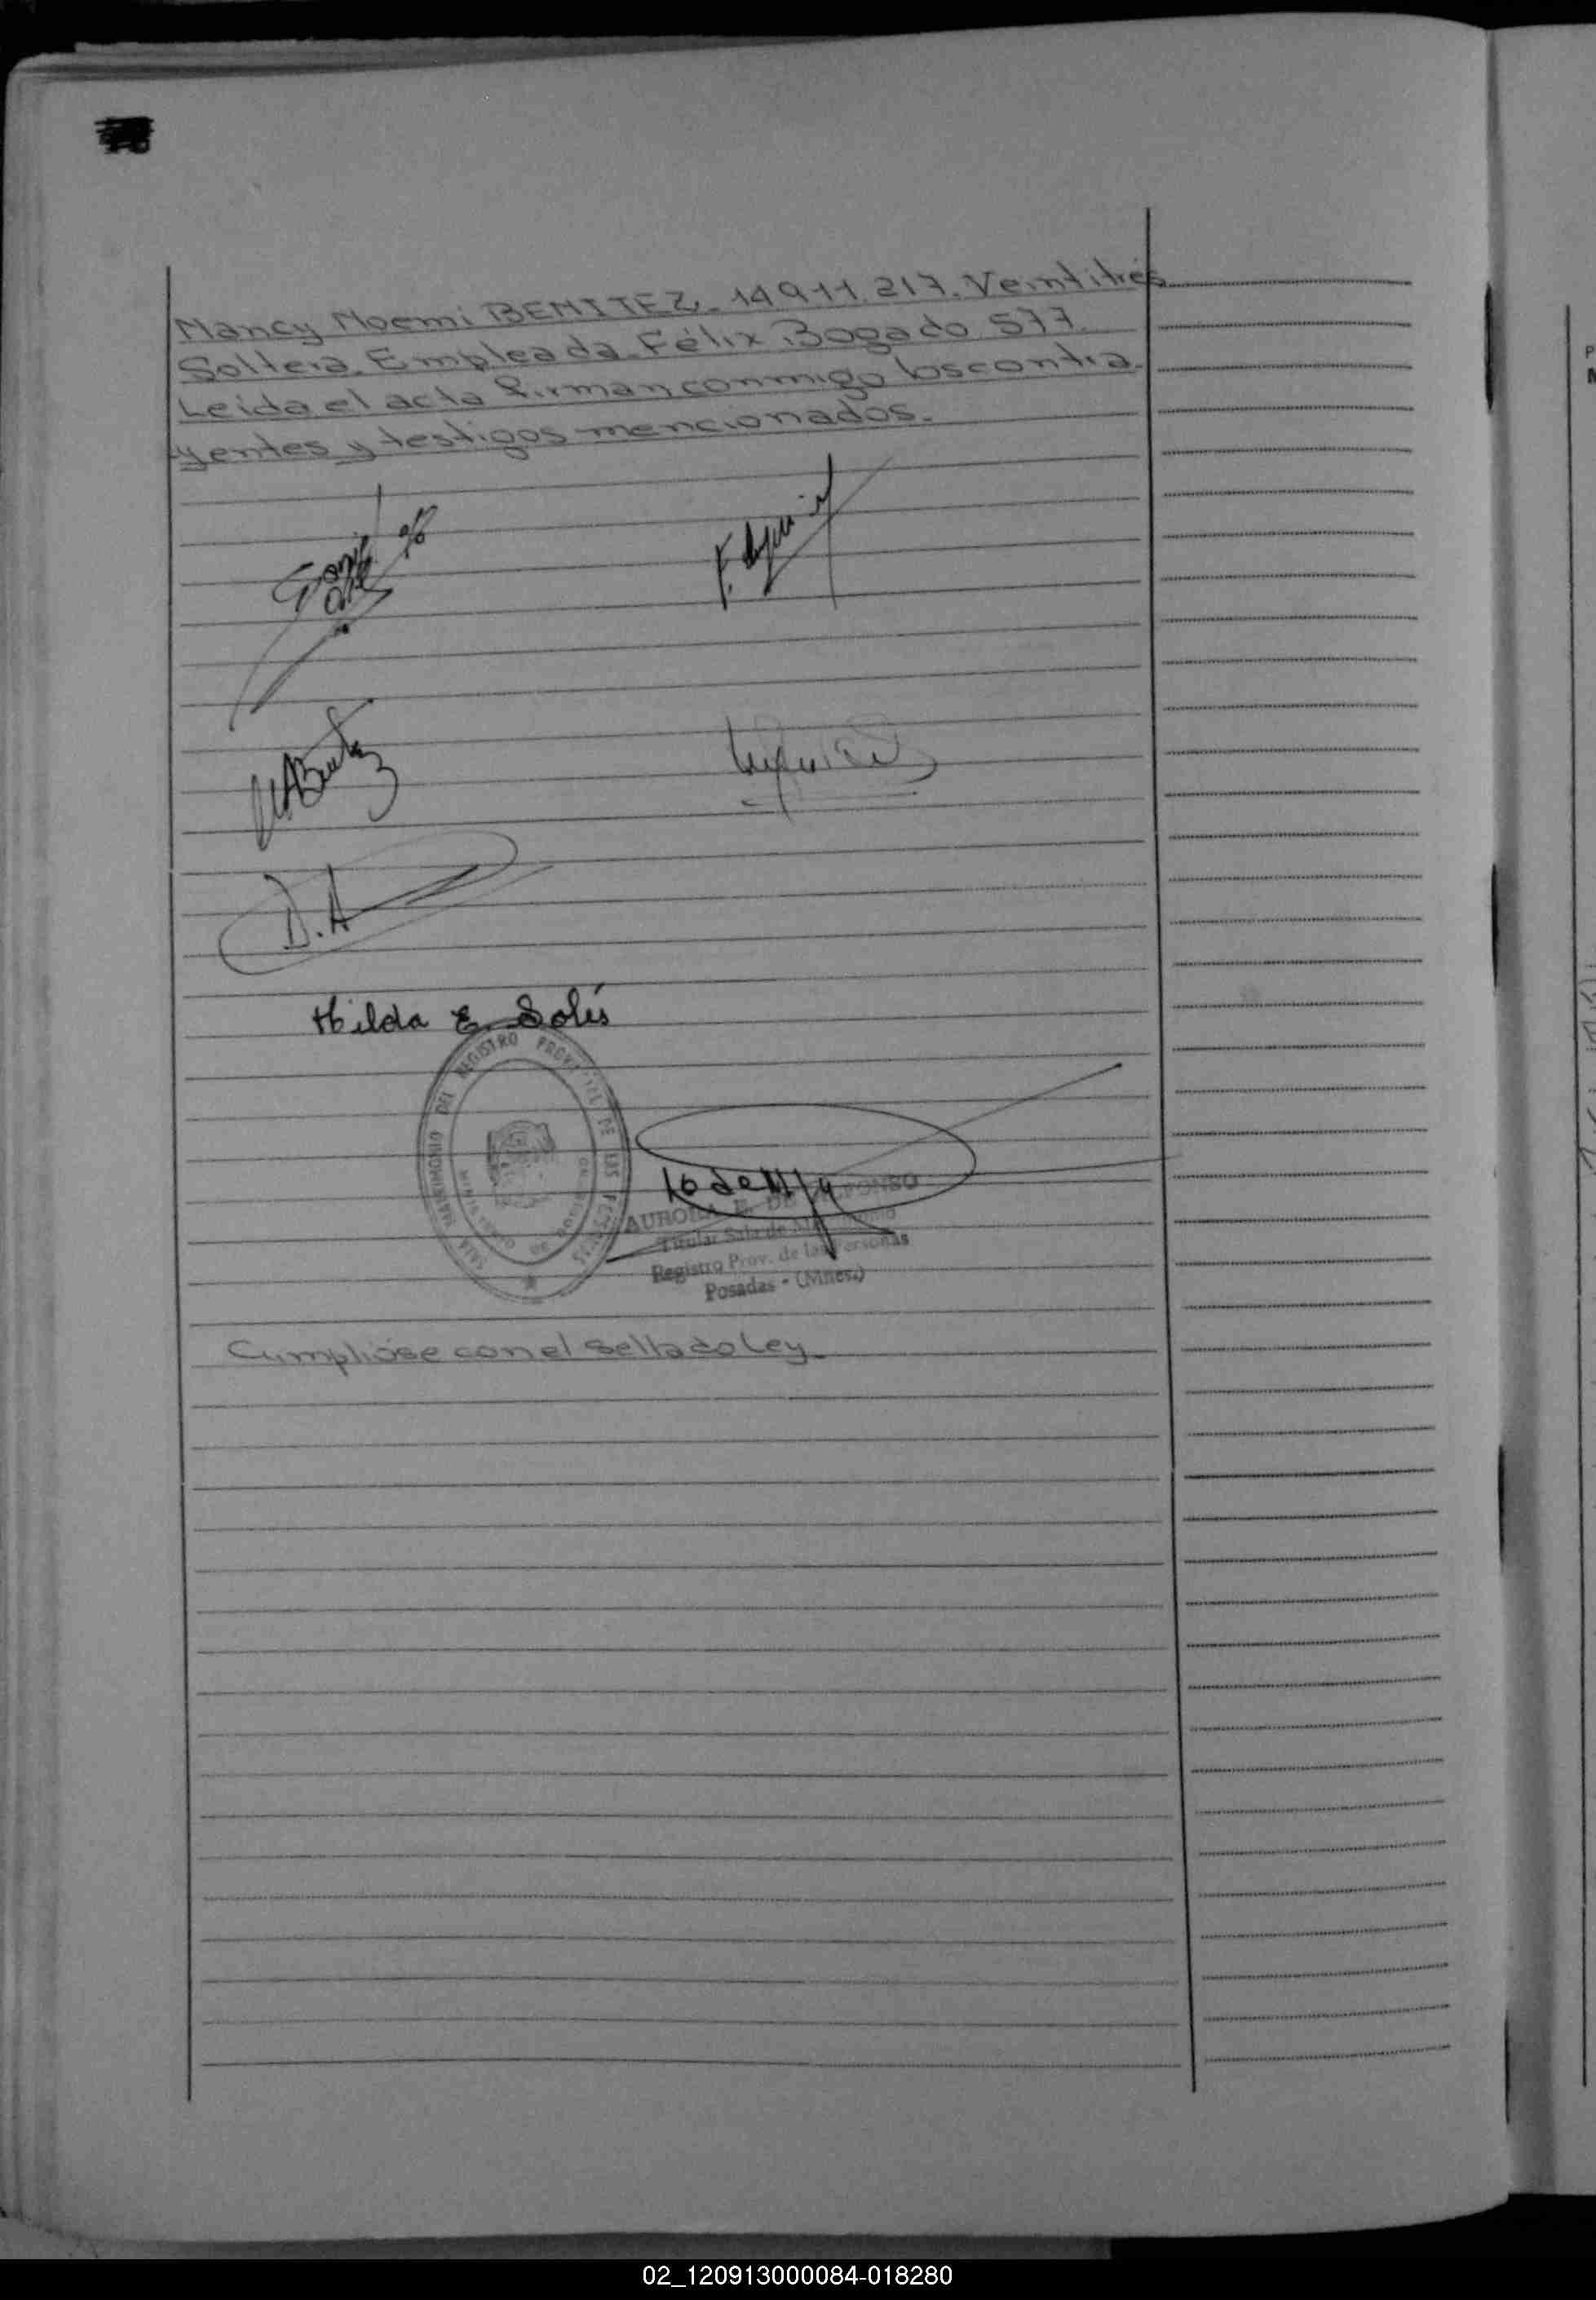 Nancy Noemi BENITEZ. 14911.217. Veintitrés
Soltera. Empleada. Félix Bogado 577.
Leida el acta firman conmigo los contra
yentes y testigos mencionados.
D.A
Hilda E. Solís
SALA MATRIMONIO DEL REGISTRO PROVINCIAL DE LAS PERSONAS
AURORA E. DE
Titular Sala de Matrimonio
Registro Prov. de las Personas
Posadas - (Mnes.)
Cumplióse con el sellado Ley.
02_120913000084-018280